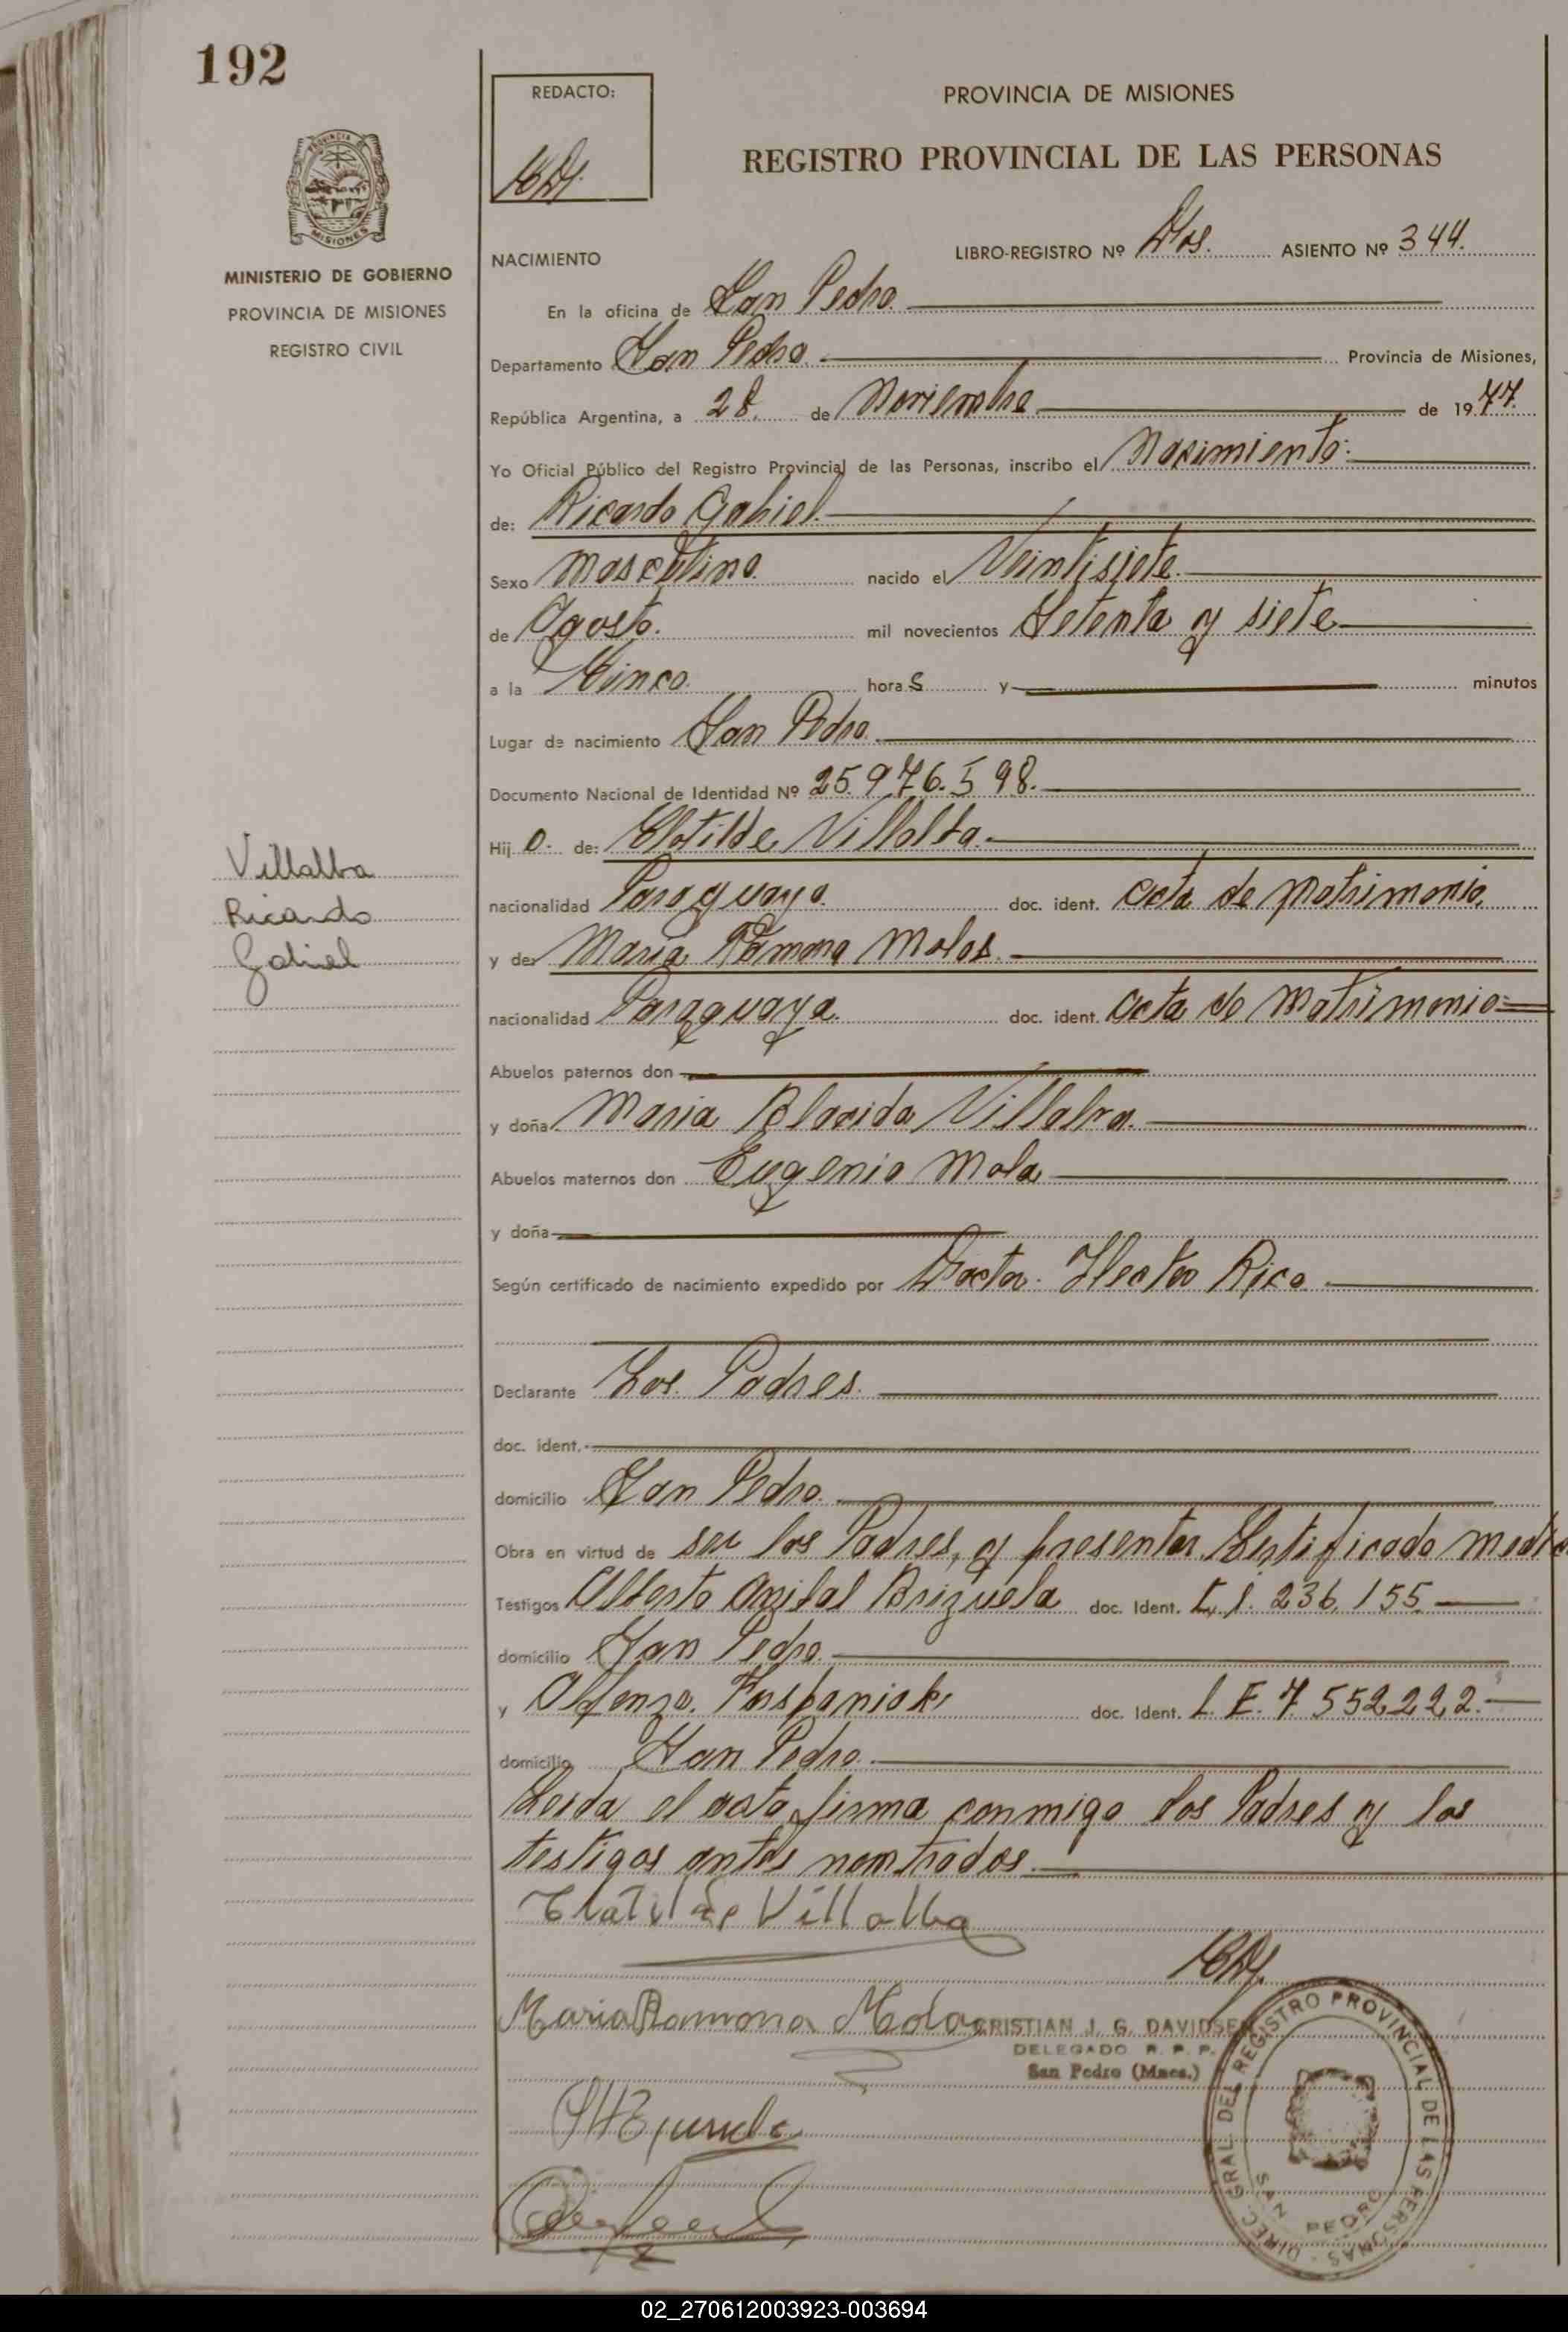 192
REDACTO:
PROVINCIA DE MISIONES
REGISTRO PROVINCIAL DE LAS PERSONAS
MISIONES
MINISTERIO DE GOBIERNO
PROVINCIA DE MISIONES
REGISTRO CIVIL
NACIMIENTO LIBRO-REGISTRO Nº Dos. ASIENTO Nº 344.
En la oficina de San Pedro
Departamento San Pedro Provincia de Misiones,
República Argentina, a 28. de Noviembre de 1977.
Yo Oficial Público del Registro Provincial de las Personas, inscribo el Nacimiento:
de: Ricardo Gabiel.
Sexo Masculino. nacido el Veintisiete.
de Agosto. mil novecientos Setenta y siete
a la Cinco. horas y minutos
Lugar de nacimiento San Pedro.
Documento Nacional de Identidad Nº 25.976.598.
Hijo. de: Clotilde Villalba.
nacionalidad Paraguayo. doc. ident. acta de matrimonio.
y de María Ramona Molas.
nacionalidad Paraguaya. doc. ident. acta de Matrimonio=
Abuelos paternos don
y doña Maria Blacida Villalva.
Abuelos maternos don Eugenio Mola
y doña
Según certificado de nacimiento expedido por Doctor. Hector Rico.
Declarante Los Padres.
doc. ident.
domicilio San Pedro.
Obra en virtud de ser los Padres, y presentar Certificado medico
Testigos Alberto Anibal Brizuela doc. Ident. L.I. 236.155
domicilio San Pedro.
y Alfonzo. Kaspaniak doc. Ident. L.E. 7.552.222.
domicilio San Pedro.
Leida el acta firma conmigo los Padres y los
testigos antes nombrados.
Clatilde Villalba
Maria Ramona Mola
CRISTIAN J. G. DAVIDSEN
DELEGADO R. P. P.
San Pedro (Mnes.)
DIREC. GRAL. DEL REGISTRO PROVINCIAL DE LAS PERSONAS
SAN PEDRO
Villalba
Ricardo
Gabiel
02_270612003923-003694